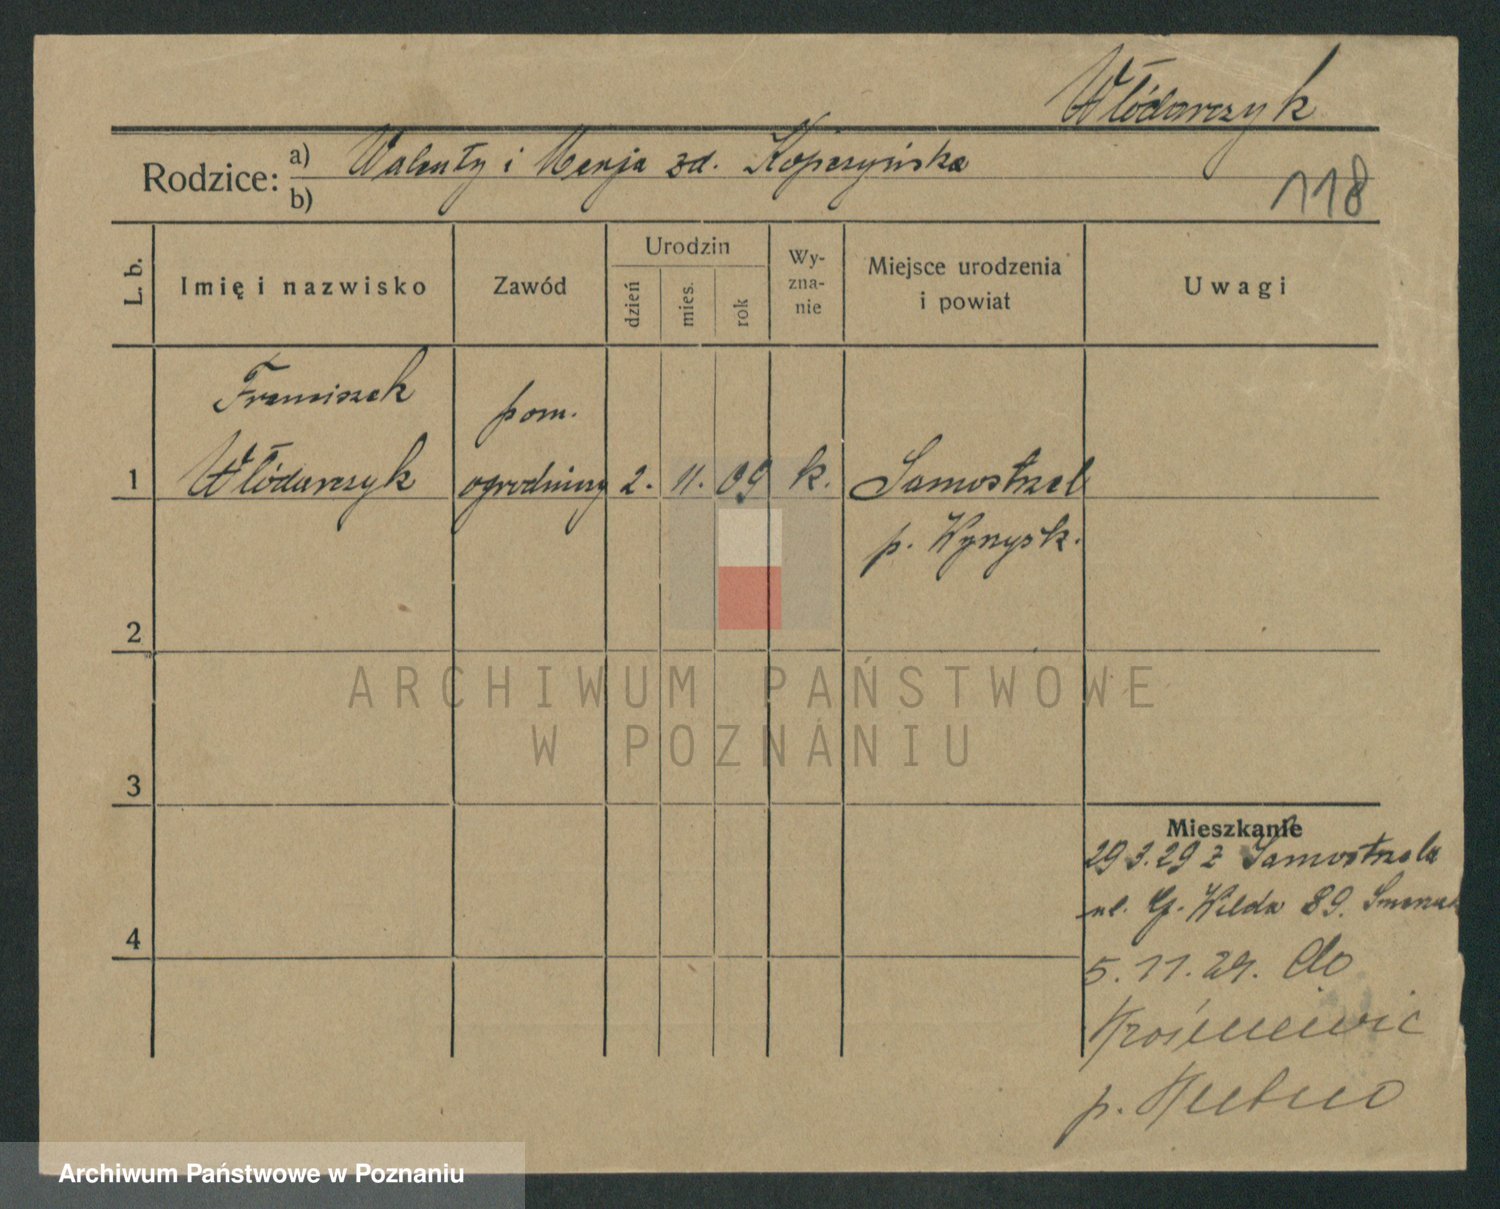 Włódarczyk
Rodzice: a) Walenty i Marja zd. Kopczyńska
b)
118
L. b.
Imię i nazwisko
Zawód
Urodzin
dzień
mies.
rok
Wy-
zna-
nie
Miejsce urodzenia
i powiat
Uwagi
Franciszek
pom.
1 Włódarczyk ogrodniczy 2. 11. 09 k. Samostrzel
p. Wyrzysk.
2
ARCHIWUM PAŃSTWOWE
W POZNANIU
3
Mieszkanie
29 3. 29 z Samostrzela
ul. G. Wilda 89.
4
5. 11. 29. do
Krośniewic
p. Kutno
Archiwum Państwowe w Poznaniu